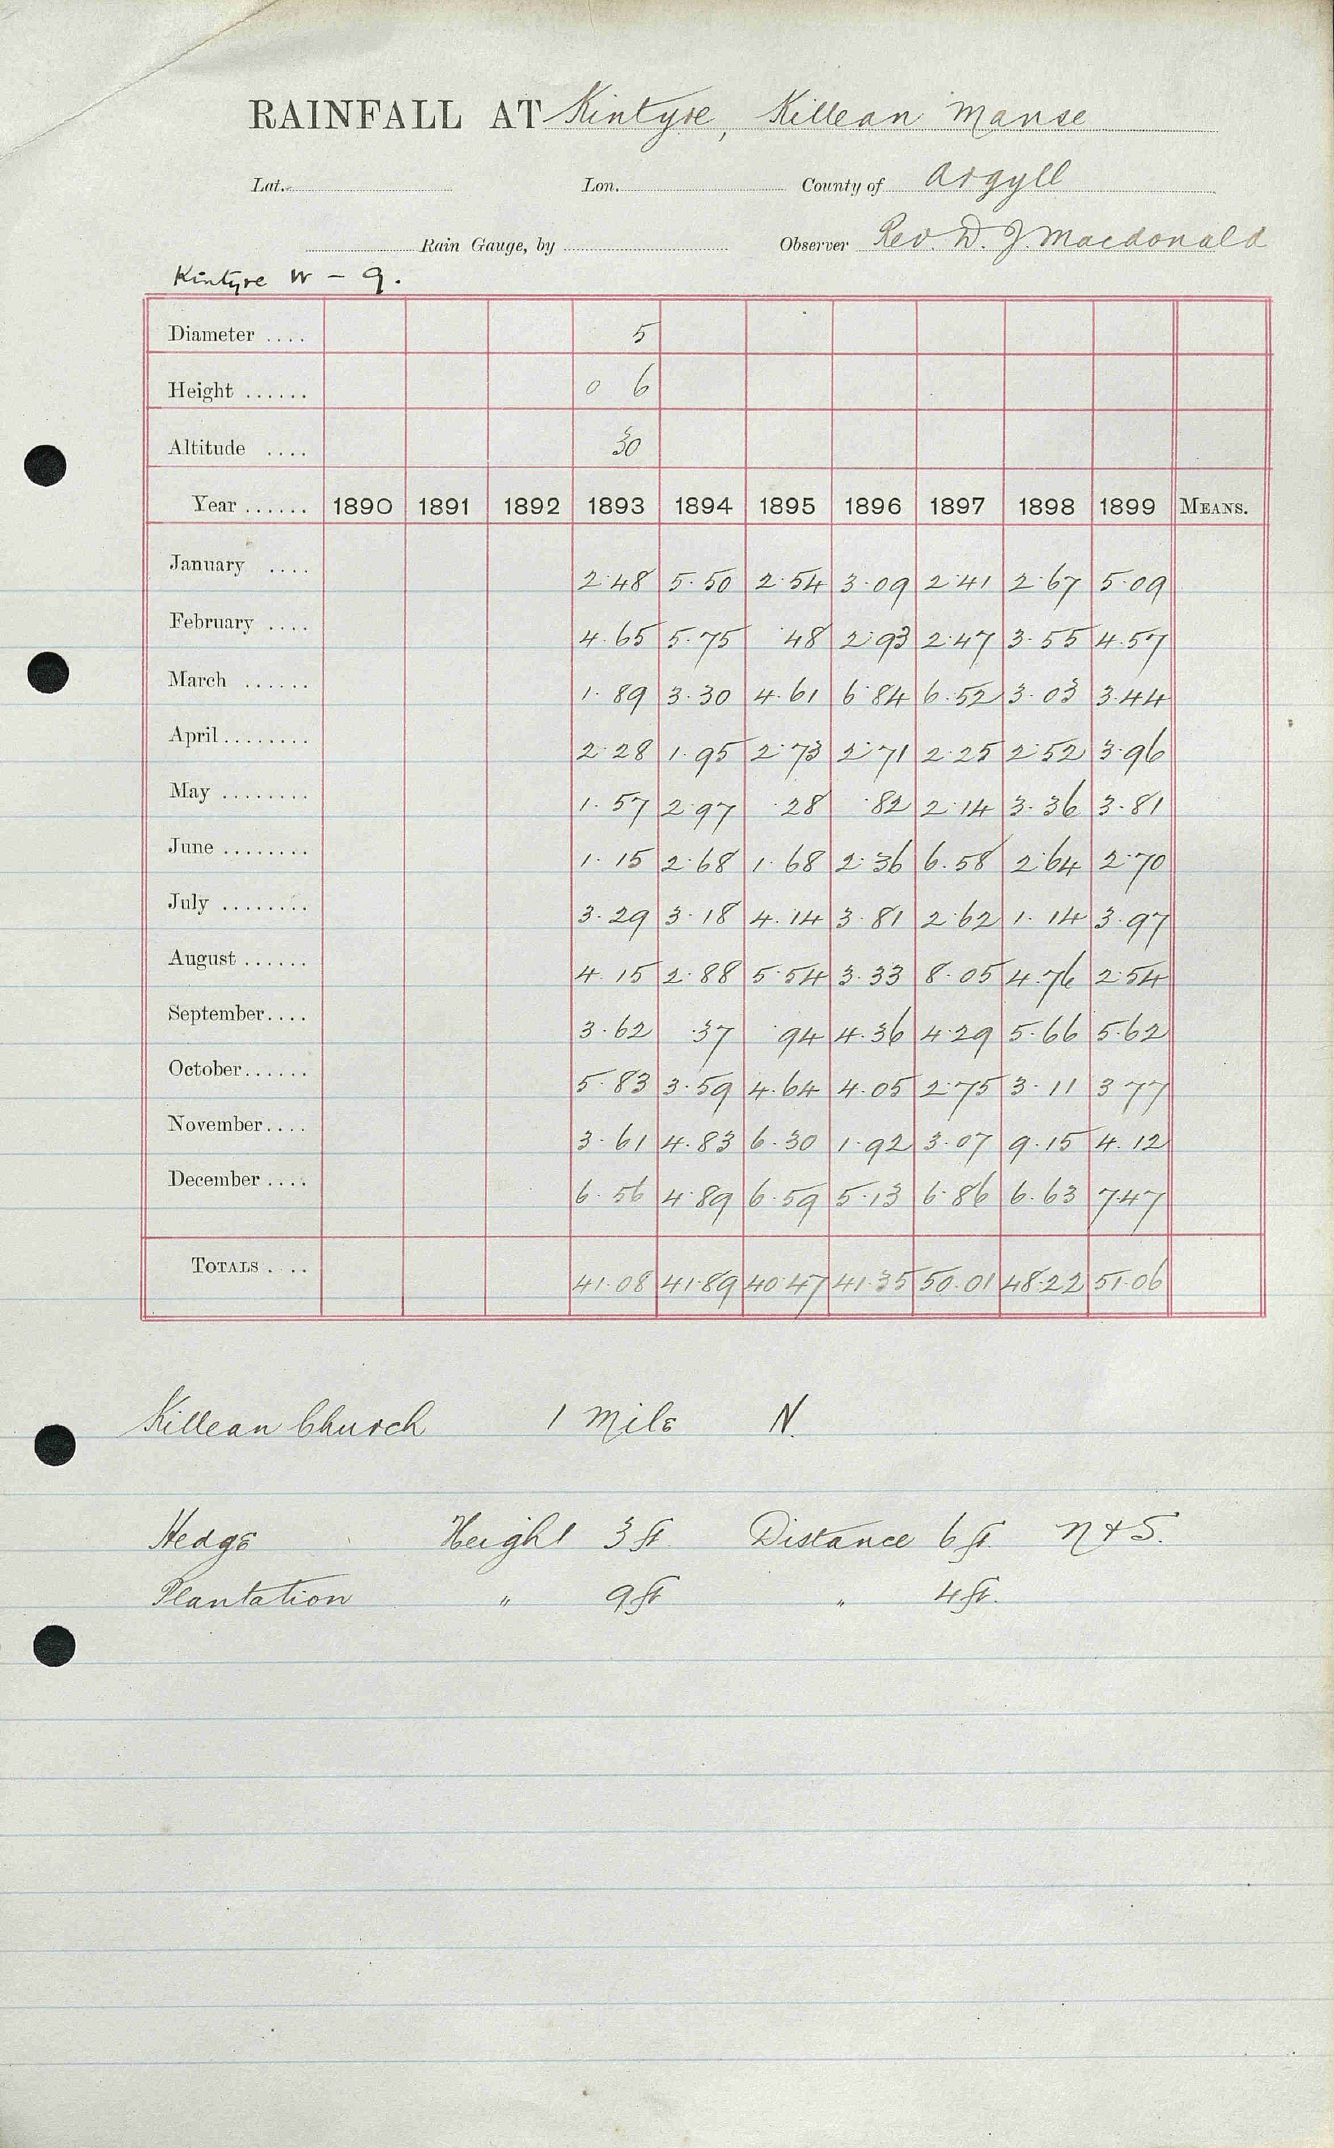 RAINFALL AT Kintyre, Killean Manse
Lat. Lon. County of Argyll
Rain Gauge, by Observer Rev. D. J. Macdonald
Kintyre W - 9.
Diameter .... 5
Height ...... 0 6
Altitude .... 30
Year ...... 1890 1891 1892 1893 1894 1895 1896 1897 1898 1899 MEANS.
January .... 2.48 5.50 2.54 3.09 2.41 2.67 5.09
February .... 4.65 5.75 .48 2.93 2.47 3.55 4.57
March ...... 1.89 3.30 4.61 6.84 6.52 3.03 3.44
April ........ 2.28 1.95 2.73 2.71 2.25 2.52 3.96
May ........ 1.57 2.97 .28 .82 2.14 3.36 3.81
June ........ 1.15 2.68 1.68 2.36 6.58 2.64 2.70
July ........ 3.29 3.18 4.14 3.81 2.62 1.14 3.97
August ...... 4.15 2.88 5.54 3.33 8.05 4.76 2.54
September.... 3.62 .37 .94 4.36 4.29 5.66 5.62
October...... 5.83 3.59 4.64 4.05 2.75 3.11 3.77
November.... 3.61 4.83 6.30 1.92 3.07 9.15 4.12
December .... 6.56 4.89 6.59 5.13 6.86 6.63 7.47
TOTALS .... 41.08 41.89 40.47 41.35 50.01 48.22 51.06
Killean Church 1 Mile N.
Hedge Height 3 ft. Distance 6 ft. N & S.
Plantation " 9 ft " 4 ft.